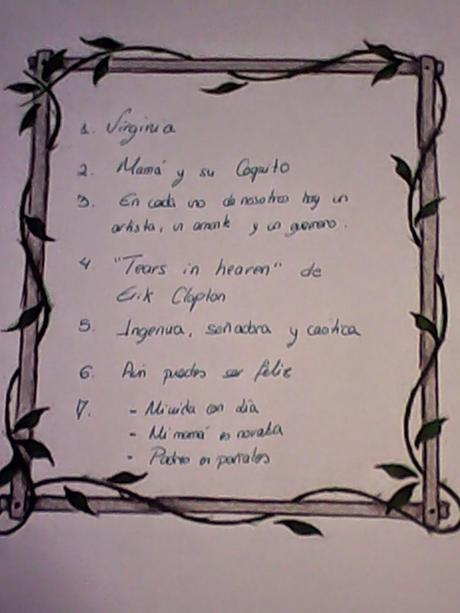 1. Virginia
2. Mamá y su Coquito
3. En cada uno de nosotros hay un
artista, un amante y un guerrero.
4. "Tears in heaven" de
Erik Clapton
5. Ingenua, soñadora y caótica
6. Aún puedes ser feliz
7. - Mi vida con día
- Mi mamá es novata
- Padres en pañales